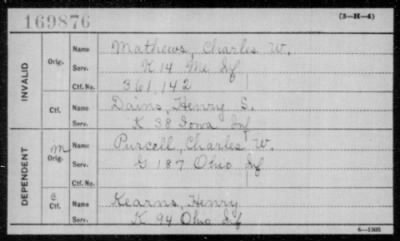 169876 (3-H-4)
INVALID
Orig. Name Mathews, Charles W.
Serv. K 14 Me Inf
Ctf. No. 361,142
Ctf. Name Dains, Henry S.
Serv. K 38 Iowa Inf
DEPENDENT
M Orig. Name Purcell, Charles W.
Serv. G 187 Ohio Inf
Ctf. No.
C Ctf. Name Kearns, Henry
Serv. K 94 Ohio Inf
6-1305